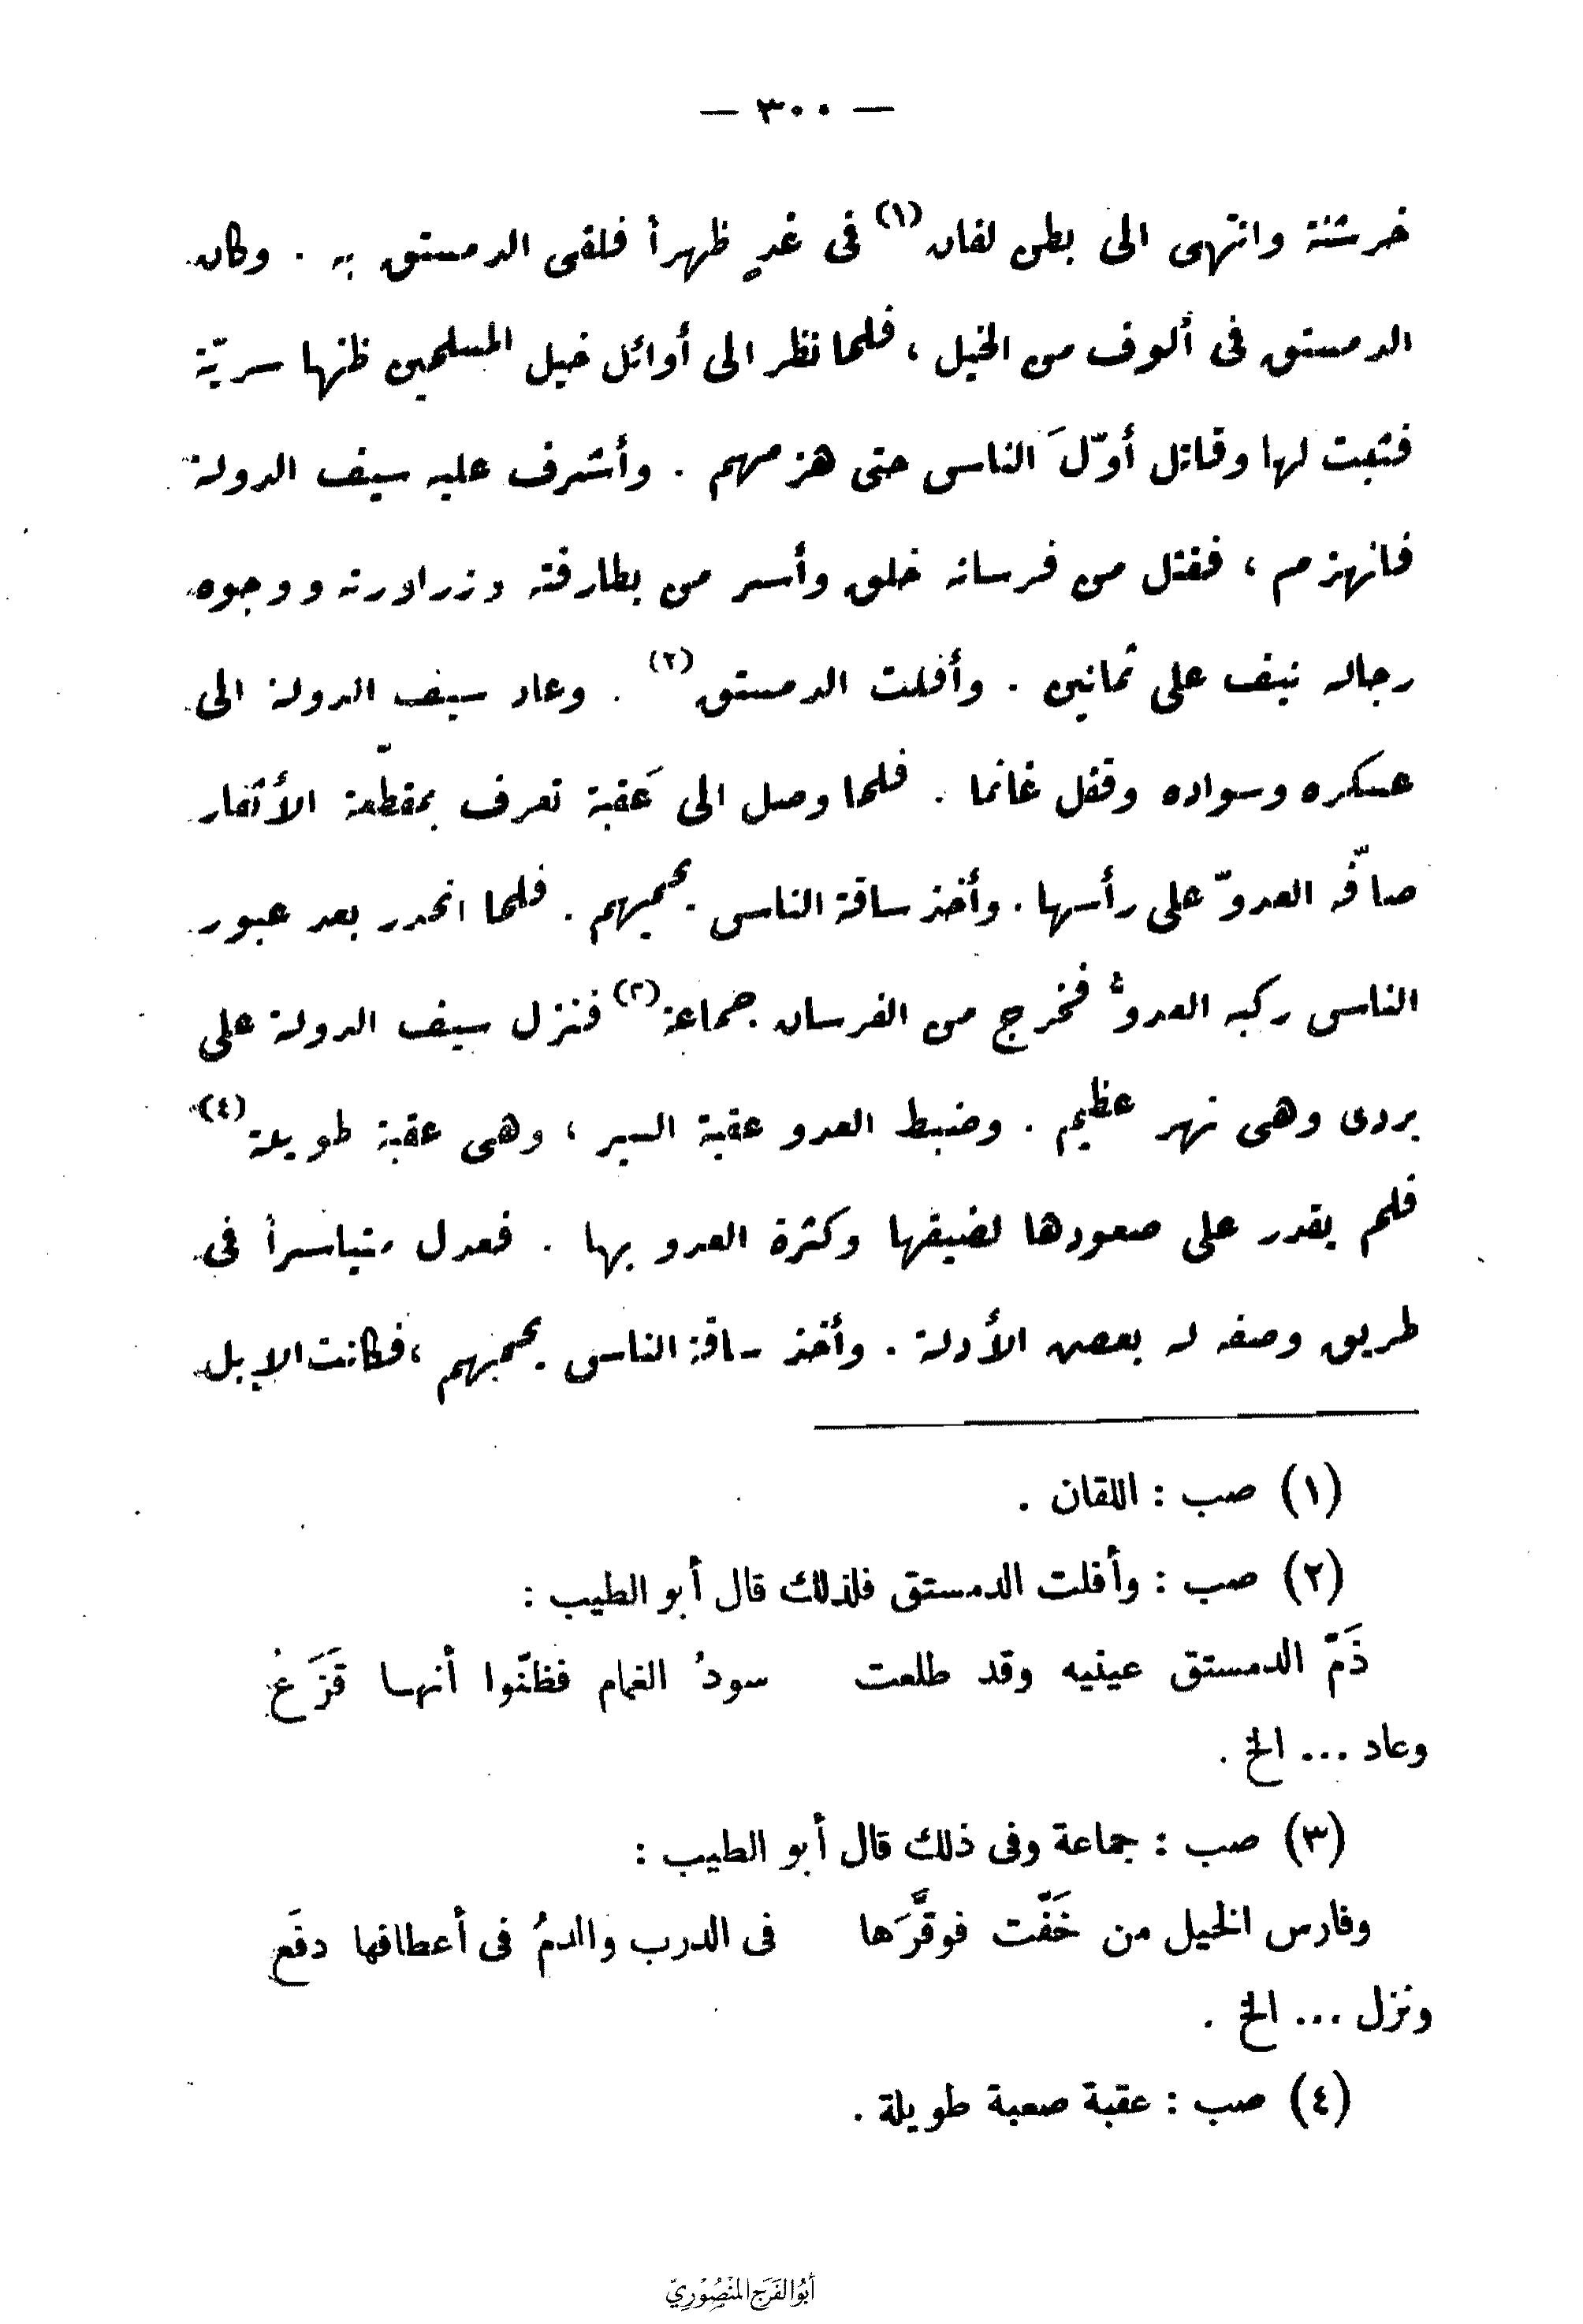 — ٣٠٠ —
خرشنة وانتهى الى بطن لقان (١) فى غدٍ ظهراً فلقى الدمستق به . وكان
الدمستق فى ألوف من الخيل ، فلما نظر الى أوائل خيل المسلمين ظنها سريّة
فثبت لها وقاتل أوّلَ الناس حتى هزمهم . وأشرف عليه سيف الدولة
فانهزم ، فقتل من فرسانه خلق وأسر من بطارقته وزراورته ووجوه
رجاله نيف على ثمانين . وأفلت الدمستق (٢) . وعاد سيف الدولة الى
عسكره وسواده وقفل غانما . فلما وصل الى عَقبة تعرف بمقطّعة الأثفار
صافّه العدوّ على رأسها . وأخذ ساقة الناس يحميهم . فلما انحدر بعد عبور
الناس ركبه العدوُّ فخرج من الفرسان جماعة (٣) فنزل سيف الدولة على
بردى وهى نهر عظيم . وضبط العدو عقبة السير ، وهى عقبة طويلة (٤)
فلم يقدر على صعودها لضيقها وكثرة العدو بها . فعدل متياسراً فى
طريق وصفه له بعض الأدلة . وأخذ ساقة الناس يحميهم ، فكانت الإبل
(١) صب : اللقان .
(٢) صب : وأفلت الدمستق فلذلك قال أبو الطيب :
ذَمّ الدمستق عينيه وقد طلعت سودُ الغمام فظنّوا أنها قَزَعُ
وعاد ... الخ .
(٣) صب : جماعة وفى ذلك قال أبو الطيب :
وفارس الخيل من خَفّت فوقَّرَها فى الدرب والدمُ فى أعطافها دفَع
ونزل ... الخ .
(٤) صب : عقبة صعبة طويلة .
أبُو الفَرَج المنْصُوْرِيّ